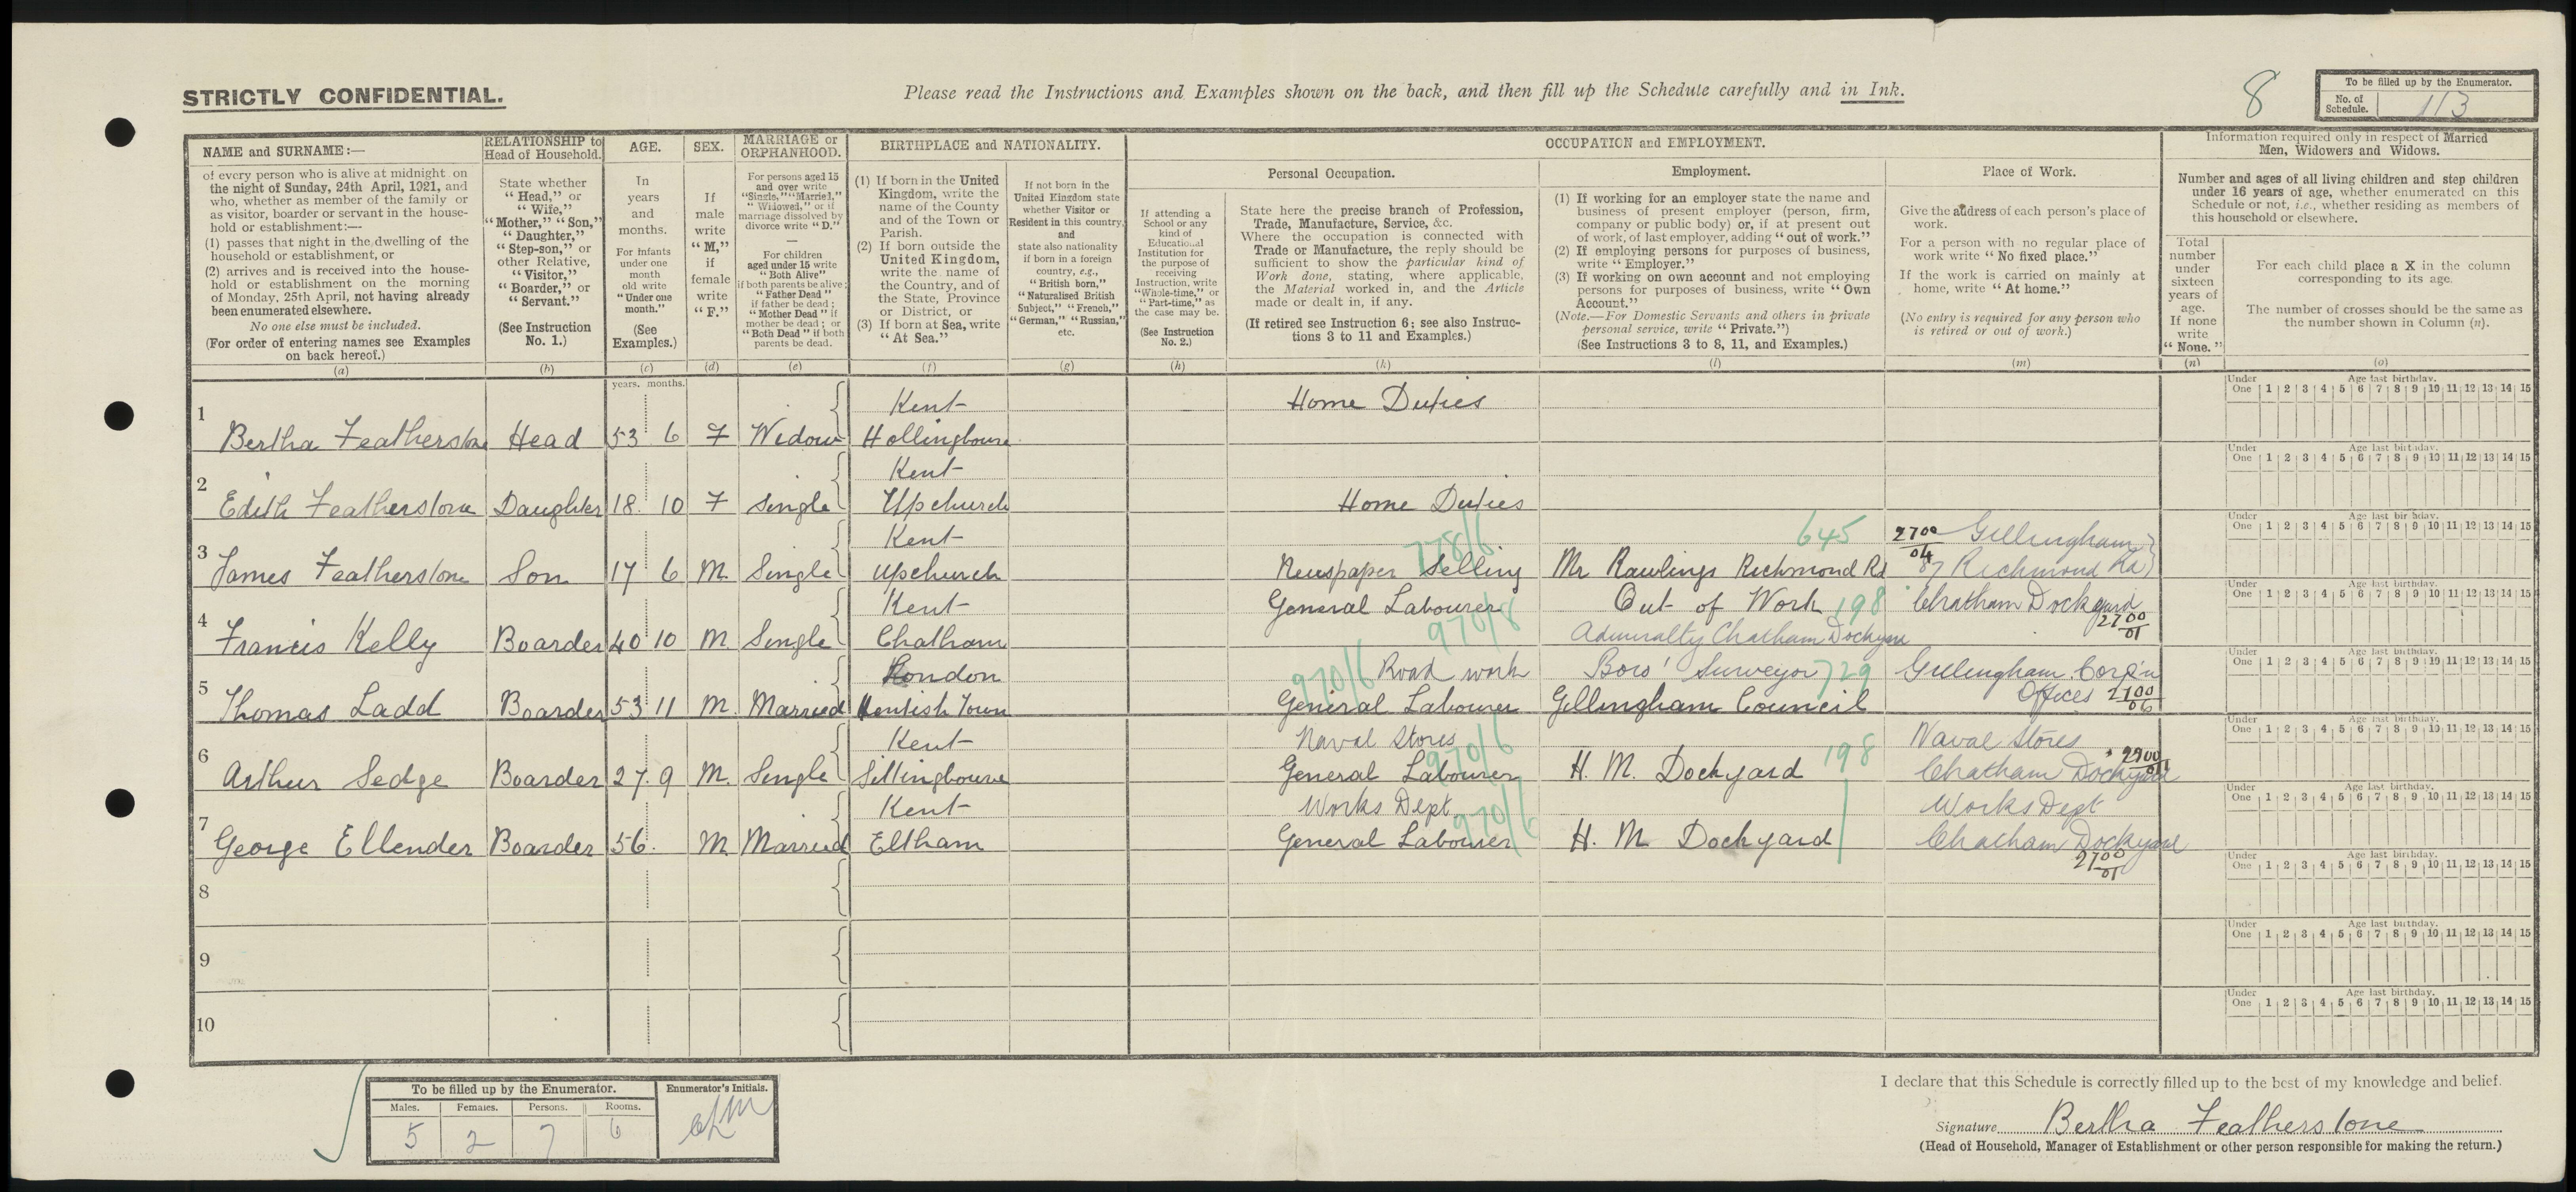 STRICTLY CONFIDENTIAL.
Please read the Instructions and Examples shown on the back, and then fill up the Schedule carefully and in Ink.
8
To be filled up by the Enumerator.
No. of Schedule. 113
NAME and SURNAME:—
of every person who is alive at midnight on
the night of Sunday, 24th April, 1921, and
who, whether as member of the family or
as visitor, boarder or servant in the house-
hold or establishment:—
(1) passes that night in the dwelling of the
household or establishment, or
(2) arrives and is received into the house-
hold or establishment on the morning
of Monday, 25th April, not having already
been enumerated elsewhere.
No one else must be included.
(For order of entering names see Examples
on back hereof.)
(a)
RELATIONSHIP to
Head of Household.
State whether
"Head," or
"Wife,"
"Mother," "Son,"
"Daughter,"
"Step-son," or
other Relative,
"Visitor,"
"Boarder," or
"Servant."
(See Instruction
No. 1.)
(b)
AGE.
In
years
and
months.
For infants
under one
month
old write
"Under one
month."
(See
Examples.)
(c)
SEX.
If
male
write
"M,"
if
female
write
"F."
(d)
MARRIAGE or
ORPHANHOOD.
For persons aged 15
and over write
"Single," "Married,"
"Widowed," or if
marriage dissolved by
divorce write "D."
—
For children
aged under 15 write
"Both Alive"
if both parents be alive;
"Father Dead"
if father be dead;
"Mother Dead" if
mother be dead; or
"Both Dead" if both
parents be dead.
(e)
BIRTHPLACE and NATIONALITY.
(1) If born in the United
Kingdom, write the
name of the County
and of the Town or
Parish.
(2) If born outside the
United Kingdom,
write the name of
the Country, and of
the State, Province
or District, or
(3) If born at Sea, write
"At Sea."
(f)
If not born in the
United Kingdom state
whether Visitor or
Resident in this country,
and
state also nationality
if born in a foreign
country, e.g.,
"British born,"
"Naturalised British
Subject," "French,"
"German," "Russian,"
etc.
(g)
OCCUPATION and EMPLOYMENT.
If attending a
School or any
kind of
Educational
Institution for
the purpose of
receiving
Instruction, write
"Whole-time," or
"Part-time," as
the case may be.
(See Instruction
No. 2.)
(h)
Personal Occupation.
State here the precise branch of Profession,
Trade, Manufacture, Service, &c.
Where the occupation is connected with
Trade or Manufacture, the reply should be
sufficient to show the particular kind of
Work done, stating, where applicable,
the Material worked in, and the Article
made or dealt in, if any.
(If retired see Instruction 6; see also Instruc-
tions 3 to 11 and Examples.)
(k)
Employment.
(1) If working for an employer state the name and
business of present employer (person, firm,
company or public body) or, if at present out
of work, of last employer, adding "out of work."
(2) If employing persons for purposes of business,
write "Employer."
(3) If working on own account and not employing
persons for purposes of business, write "Own
Account."
(Note.—For Domestic Servants and others in private
personal service, write "Private.")
(See Instructions 3 to 8, 11, and Examples.)
(l)
Place of Work.
Give the address of each person's place of
work.
For a person with no regular place of
work write "No fixed place."
If the work is carried on mainly at
home, write "At home."
(No entry is required for any person who
is retired or out of work.)
(m)
Information required only in respect of Married
Men, Widowers and Widows.
Number and ages of all living children and step children
under 16 years of age, whether enumerated on this
Schedule or not, i.e., whether residing as members of
this household or elsewhere.
Total
number
under
sixteen
years of
age.
If none
write
"None."
(n)
For each child place a X in the column
corresponding to its age.
The number of crosses should be the same as
the number shown in Column (n).
(o)
years. months.
Under One Age last birthday. 1 2 3 4 5 6 7 8 9 10 11 12 13 14 15
Kent Home Duties
1 Bertha Featherstone Head 53 6 F Widow Hollingbourne
Under One Age last birthday. 1 2 3 4 5 6 7 8 9 10 11 12 13 14 15
Kent
2 Edith Featherstone Daughter 18 10 F Single Upchurch Home Duties
Under One Age last birthday. 1 2 3 4 5 6 7 8 9 10 11 12 13 14 15
Kent 778/6 645 2700/04 Gillingham
3 James Featherstone Son 17 6 M Single Upchurch Newspaper Selling Mr Rawlings Richmond Rd 87 Richmond Rd
Under One Age last birthday. 1 2 3 4 5 6 7 8 9 10 11 12 13 14 15
Kent General Labourer Out of Work 198 Chatham Dockyard 2700/01
4 Francis Kelly Boarder 40 10 M Single Chatham 970/8 Admiralty Chatham Dockyard
Under One Age last birthday. 1 2 3 4 5 6 7 8 9 10 11 12 13 14 15
London 970/6 Road work Boro' Surveyor 729 Gillingham Corp'n
5 Thomas Ladd Boarder 53 11 M Married Kentish Town General Labourer Gillingham Council Offices 2700/06
Under One Age last birthday. 1 2 3 4 5 6 7 8 9 10 11 12 13 14 15
Kent Naval Stores 970/6 Naval Stores 2700/01
6 Arthur Sedge Boarder 27 9 M Single Sittingbourne General Labourer H. M. Dockyard 198 Chatham Dockyard
Under One Age last birthday. 1 2 3 4 5 6 7 8 9 10 11 12 13 14 15
Kent Works Dept 970/6 Works Dept
7 George Ellender Boarder 56 M Married Eltham General Labourer H. M Dockyard Chatham Dockyard
2700/01
Under One Age last birthday. 1 2 3 4 5 6 7 8 9 10 11 12 13 14 15
8
Under One Age last birthday. 1 2 3 4 5 6 7 8 9 10 11 12 13 14 15
9
Under One Age last birthday. 1 2 3 4 5 6 7 8 9 10 11 12 13 14 15
10
To be filled up by the Enumerator.
Males. Females. Persons. Rooms.
5 2 7 6
Enumerator's Initials.
I declare that this Schedule is correctly filled up to the best of my knowledge and belief.
Signature Bertha Featherstone
(Head of Household, Manager of Establishment or other person responsible for making the return.)